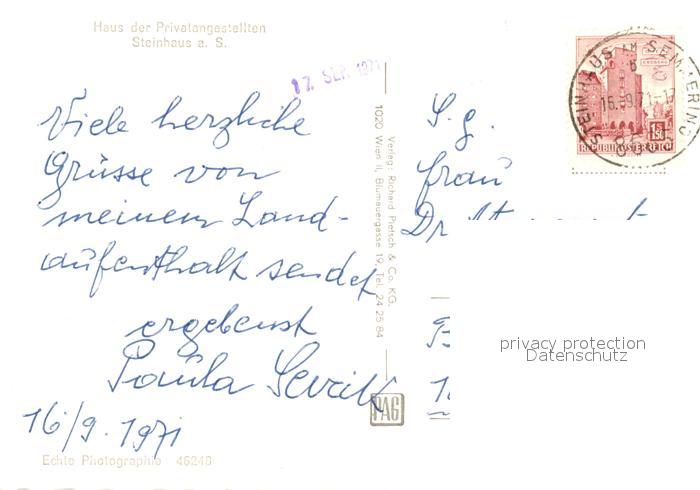 Haus der Privatangestellten
Steinhaus a. S.
17. SEP. 1971
Viele herzliche
Grüsse von
meinem Land-
aufenthalt sendet
ergebenst
Paula
16/9. 1971
Echte Photographie 46248
Verlag: Richard Pietsch & Co. KG.
1020 Wien II, Blumauergasse 19, Tel. 24 25 84
PAG
STEINHAUS AM SEMMERING
16.-9.71-17
REPUBLIK ÖSTERREICH
S. g.
Frau
Dr
privacy protection
Datenschutz